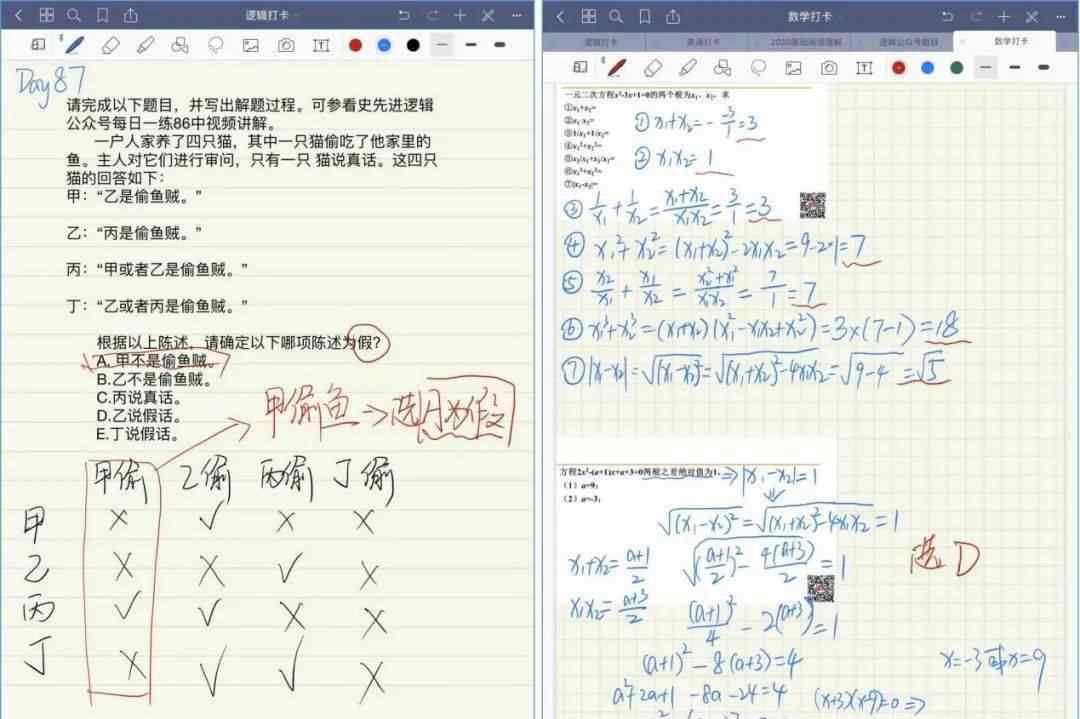 逻辑打卡
Day87
请完成以下题目，并写出解题过程。可参看史先进逻辑
公众号每日一练86中视频讲解。
一户人家养了四只猫，其中一只猫偷吃了他家里的
鱼。主人对它们进行审问，只有一只 猫说真话。这四只
猫的回答如下：
甲：“乙是偷鱼贼。”
乙：“丙是偷鱼贼。”
丙：“甲或者乙是偷鱼贼。”
丁：“乙或者丙是偷鱼贼。”
根据以上陈述，请确定以下哪项陈述为假？
A. 甲不是偷鱼贼。
B.乙不是偷鱼贼。
C.丙说真话。
D.乙说假话。
E.丁说假话。
甲偷鱼 → 选A为假
甲偷 乙偷 丙偷 丁偷
甲 × √ × ×
乙 × × √ ×
丙 √ √ × ×
丁 × √ √ ×
数学打卡
逻辑打卡 英语打卡 2020基础阅读理解 逻辑公众号题目 数学打卡
一元二次方程x²-3x+1=0的两个根为x₁，x₂，求
①x₁+x₂=
②x₁·x₂=
③1/x₁+1/x₂=
④x₁²+x₂²=
⑤x₂/x₁+x₁/x₂=
⑥x₁³+x₂³=
⑦|x₁-x₂|=
① x₁+x₂=-\frac{-3}{1}=3
② x₁x₂=1
③ \frac{1}{x₁}+\frac{1}{x₂}=\frac{x₁+x₂}{x₁x₂}=\frac{3}{1}=3
④ x₁²+x₂²=(x₁+x₂)²-2x₁x₂=9-2×1=7
⑤ \frac{x₂}{x₁}+\frac{x₁}{x₂}=\frac{x₂²+x₁²}{x₁x₂}=\frac{7}{1}=7
⑥ x₁³+x₂³=(x₁+x₂)(x₁²-x₁x₂+x₂²)=3×(7-1)=18
⑦ |x₁-x₂|=√(x₁-x₂)²=√(x₁+x₂)²-4x₁x₂=√9-4=√5
方程2x²-(a+1)x+a+3=0两根之差绝对值为1.
⇒|x₁-x₂|=1
（1）a=9；
（2）a=-3；
√(x₁-x₂)²=√(x₁+x₂)²-4x₁x₂=1
x₁+x₂=\frac{a+1}{2}
√(\frac{a+1}{2})²-\frac{4(a+3)}{2}=1
选D
x₁x₂=\frac{a+3}{2}
\frac{(a+1)²}{4}-2(a+3)=1
(a+1)²-8(a+3)=4
x=-3或x=9
a²+2a+1-8a-24=4
(x+3)(x-9)=0⇒